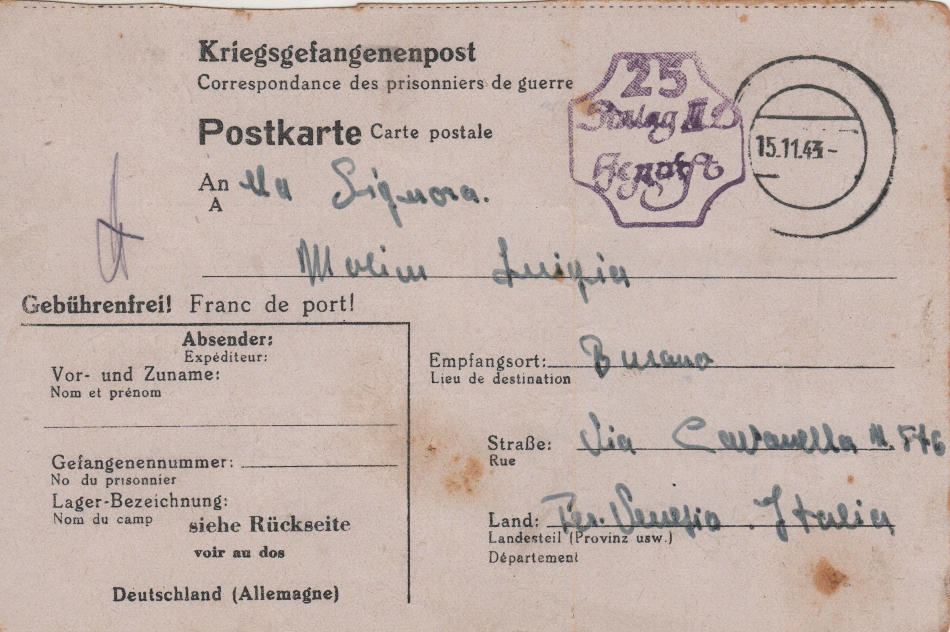 Kriegsgefangenenpost
Correspondance des prisonniers de guerre
Postkarte Carte postale
25
Stalag III D
Geprüft
15.11.43-
An
A
alla Signora.
Molin Luigia
Gebührenfrei! Franc de port!
Absender:
Expéditeur:
Vor- und Zuname:
Nom et prénom
Gefangenennummer:
No du prisonnier
Lager-Bezeichnung:
Nom du camp
siehe Rückseite
voir au dos
Deutschland (Allemagne)
Empfangsort: Burano
Lieu de destination
Straße: Via Cavanella N. 576
Rue
Land: Per Venezia . Italia
Landesteil (Provinz usw.)
Département